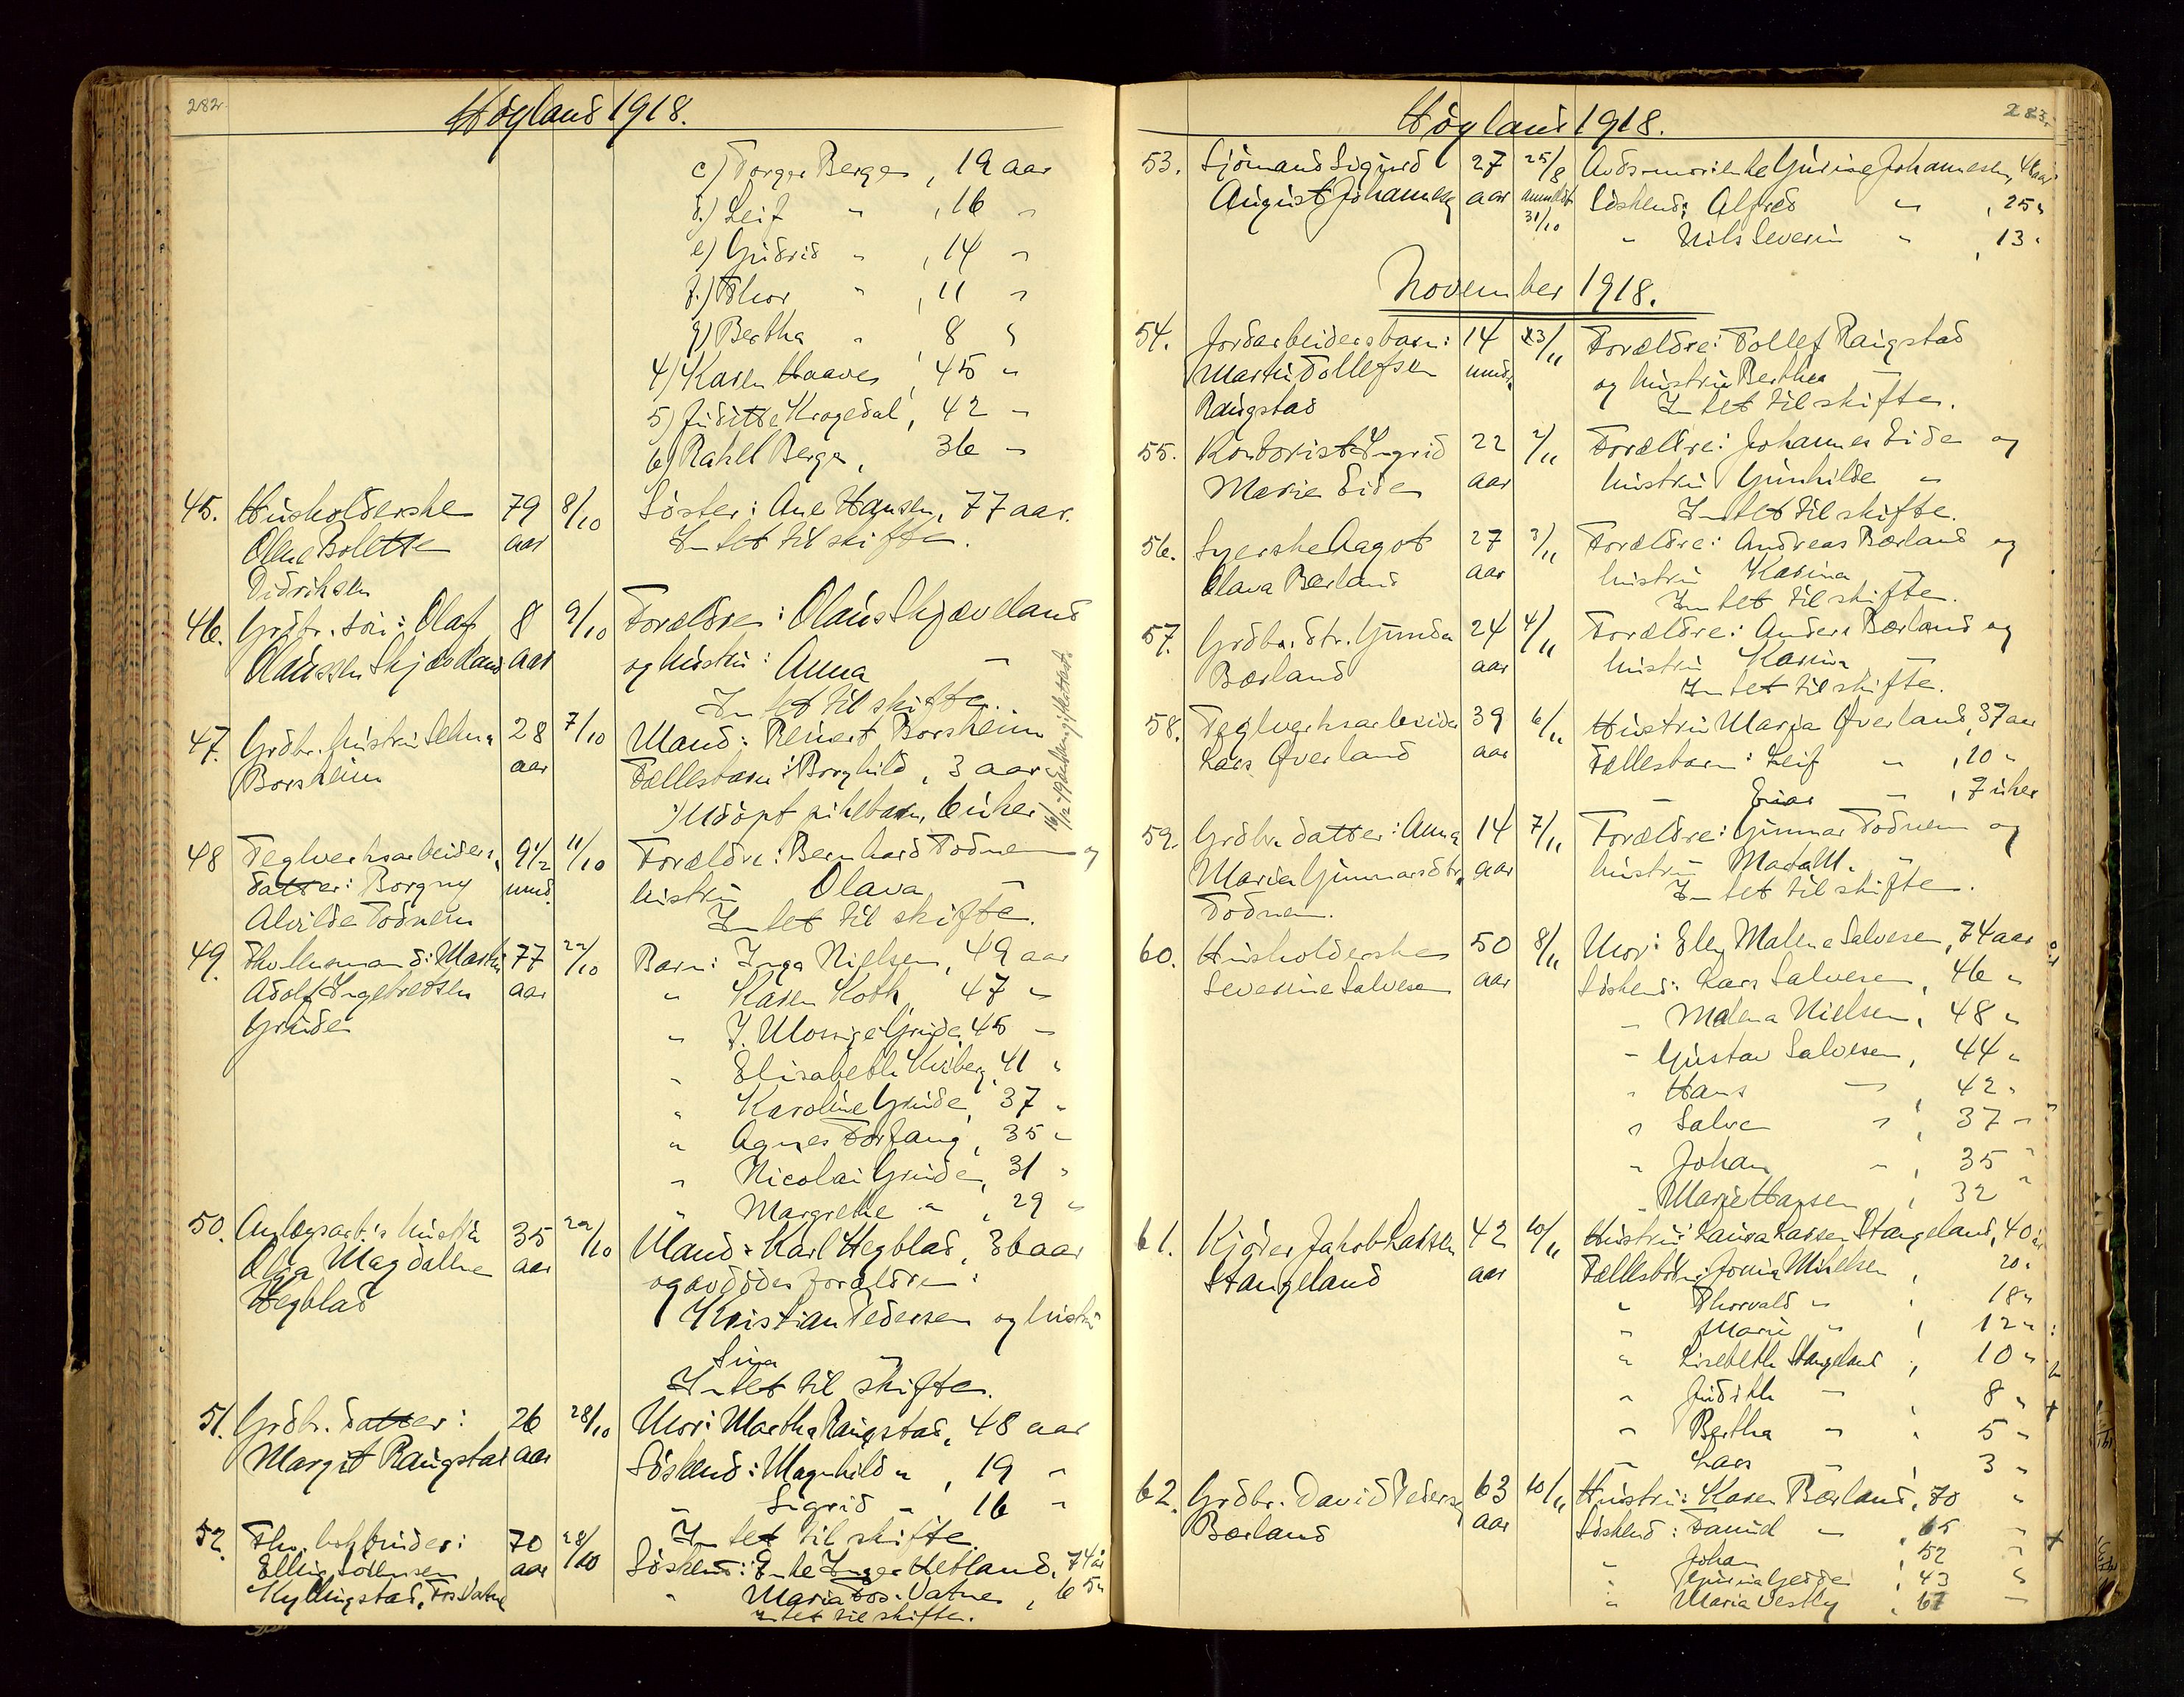 282.
Høyland 1918.
c) Torger Berge, 19 aar
d.) Leif " , 16 "
e) Gudrid " , 14 "
f.) Thor " , 11 "
g) Bertha " 8 "
4) Karen Haaver, 45 "
5) Juditte Krogedal, 42 "
6) Rahel Berge, 36 "
45. Husholderske 79 8/10 Søster: Ane Hansen, 77 aar.
Oline Bolette aar Intet til skifte.
Didriksen
46. Grdbr. søn: Olaf 8 9/10 Forældre: Olaus Skjæveland
Olaussen Skjæveland aar og hustru: Anna —
Intet til skifte.
47. Grdbr. hustru Selma 28 7/10 Mand: Reinert Borsheim
Borsheim aar Fællesbarn: Borghild, 3 aar
Udøpt pikebarn, 6 uker
48 Teglverksarbeiders 9 1/2 11/10 Forældre: Bernhard Todnem og
datter: Borgny mnd. hustru Olava —
Alvilde Todnem Intet til skifte.
49. Fhv. lensmand: Martin 77 22/10 Barn: Inga Nielsen, 49 aar
Adolf Ingebretsen aar " Karen Roth, 47 "
Grude " J. Mossige Grude, 45 "
" Elisabeth Kviberg, 41 "
" Karoline Grude, 37 "
" Agnes Torfang, 35 "
" Nicolai Grude, 31 "
" Margrethe " , 29 "
50. Anlægsarb.s hustru 35 22/10 Mand: Karl Hegblad, 36 aar
Olga Magdalene aar og avdødes forældre:
Hegblad Kristian Pedersen og hustru
Sina —
Intet til skifte.
51. Grdbr. datter: 26 28/10 Mor: Martha Raugstad, 48 aar
Margit Raugstad aar Søskend: Magnhild " , 19 "
" Sigrid " 16 "
Intet til skifte.
52. Fhv. bokbinder: 70 28/10 Søskend: Enke Inger Hetland, 74 aar
Elling Sørensen aar " Maria Fos-Vatne, 65 "
Kyllingstad, Fos-Vatne Intet til skifte.
283.
Høyland 1918.
53. Sjømand Sigurd 27 25/8 Avds. mor: enke Gurine Johannesen, 46 aar
August Johannesen aar anmeldt Søskend: Alfred " , 25 "
31/10 " Nils Severin " , 13 "
November 1918.
54. Jordarbeidersbarn: 14 23/11 Forældre: Tollef Raugstad
Martin Tollefsen mnd. og hustru Berthe —
Raugstad Intet til skifte.
55. Kontorist Ingrid 22 2/11 Forældre: Johannes Eide og
Marie Eide aar hustru Gunhilde "
Intet til skifte.
56. Syerske Aagot 27 3/11 Forældre: Andreas Bærland og
Olava Bærland aar hustru Karina —
Intet til skifte.
57. Grdbr. dtr. Gunda 24 4/11 Forældre: Anders Bærland og
Bærland aar hustru Karina —
Intet til skifte.
58. Teglverksarbeider 39 6/11 Hustru Maria Øverland, 37 aar
Lars Øverland aar Fællesbarn: Leif " , 10 "
— Einar — , 7 uker
59. Grdbr. datter: Anna 14 7/11 Forældre: Gunnar Todnem og
Maria Gunnarsdtr. aar hustru Mada M. "
Todnem. Intet til skifte.
60. Husholderske 50 8/11 Mor: Elen Malene Salvesen, 74 aar
Severine Salvesen aar Søskend: Lars Salvesen, 46 "
— Malena Nielsen, 48 "
— Gustav Salvesen, 44 "
" Hans — , 42 "
" Salve " , 37 "
" Johan " , 35 "
" Marie Hansen, 32 "
61. Kjører Jakob Larsen 42 10/11 Hustru: Laura Larsen Stangeland, 40 aar
Stangeland aar Fællesbarn: Mikelsen, 20 "
" Thorvald " , 18 "
" Marie " , 12 "
" Lisebeth Stangeland, 10 "
" Judith — 8 "
" Bertha " , 5 "
— Lars — , 3 "
62. Grdbr. David Pedersen 63 10/11 Hustru: Karen Bærland, 70 "
Bærland aar Søskend: — , 65 "
" Johan , 52 "
" , 43 "
" Maria Vestly , 67 "